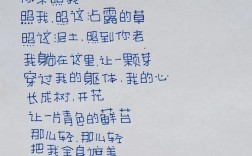 照我，照这沾露的草
照这泥土，照到你老
我躺在这里，让一颗芽
穿过我的躯体，我的心
长成树，开花
让一片青色的藓苔
那么轻，那么轻
把我全身遮盖